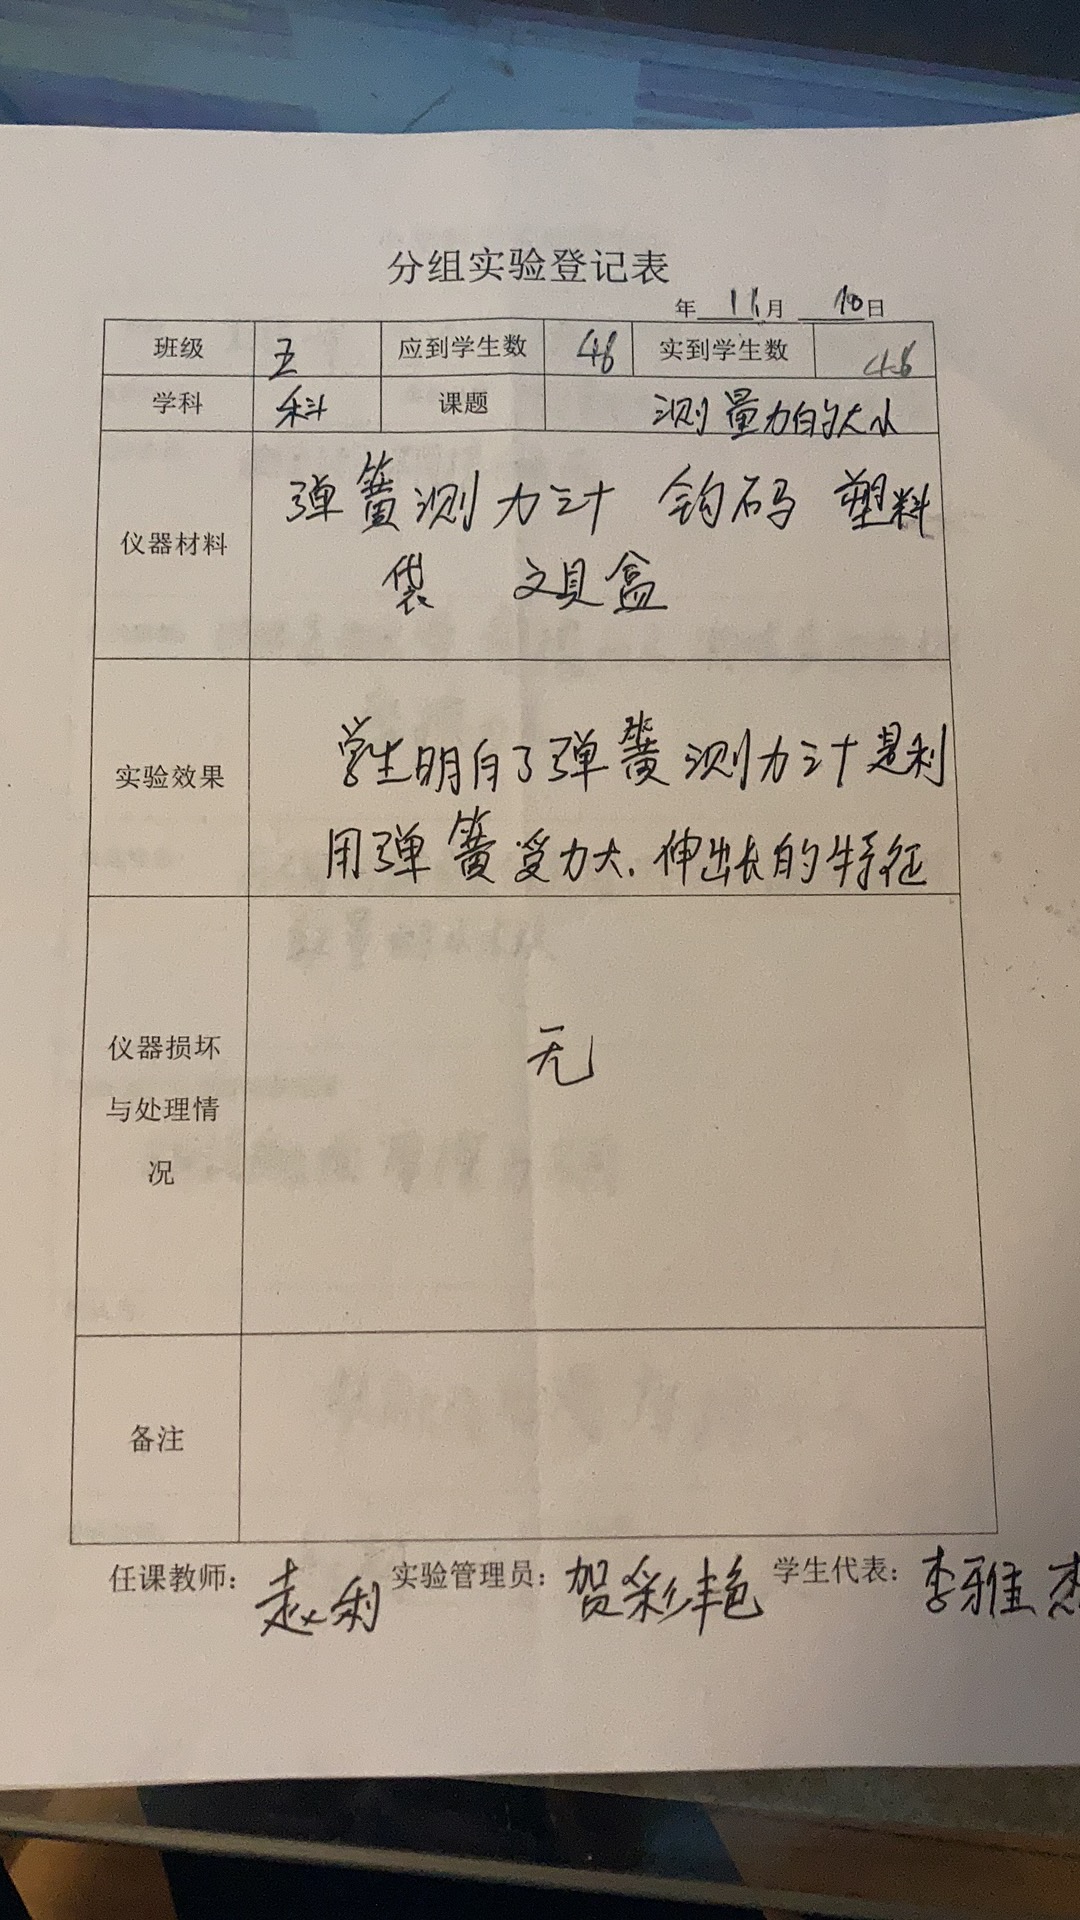 分组实验登记表
年 11月 10日
班级 五 应到学生数 46 实到学生数 46
学科 科 课题 测量力的大小
仪器材料 弹簧测力计 钩码 塑料
袋 文具盒
实验效果 学生明白了弹簧测力计是利
用弹簧受力大.伸出长的特征
仪器损坏
与处理情
况
无
备注
任课教师: 赵利 实验管理员: 贺彩艳 学生代表: 李雅杰